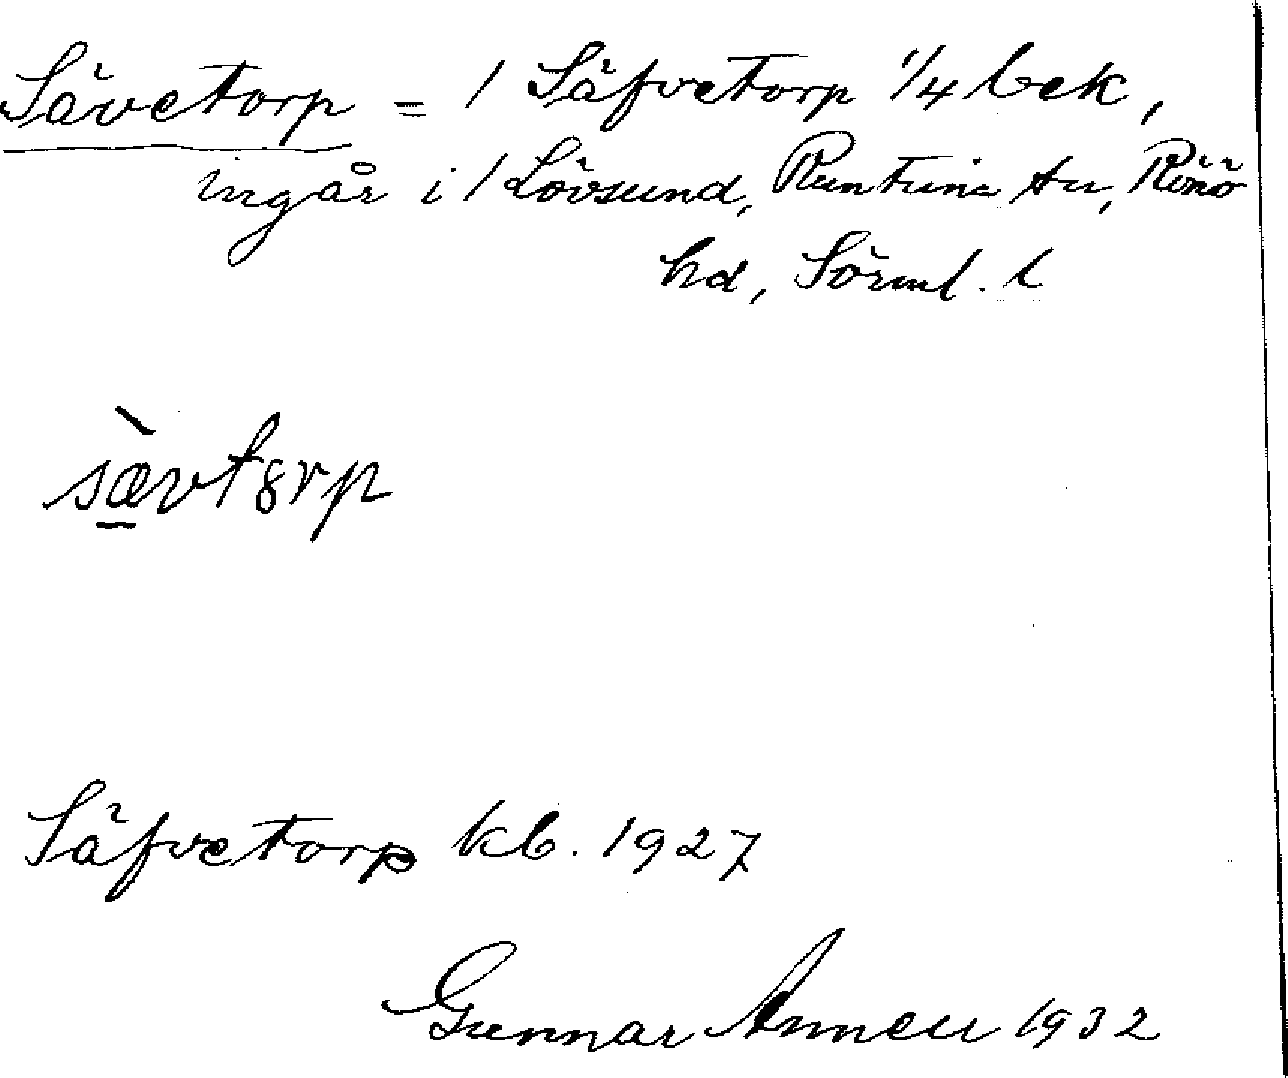 Sävetorp = 1 Säfvetorp 1/4 bek,
ingår i 1 Lövsund, Runtuna sn, Rönö
hd, Sörml. l
sævtorp
Säfvetorp kb. 1927
Gunnar 1932